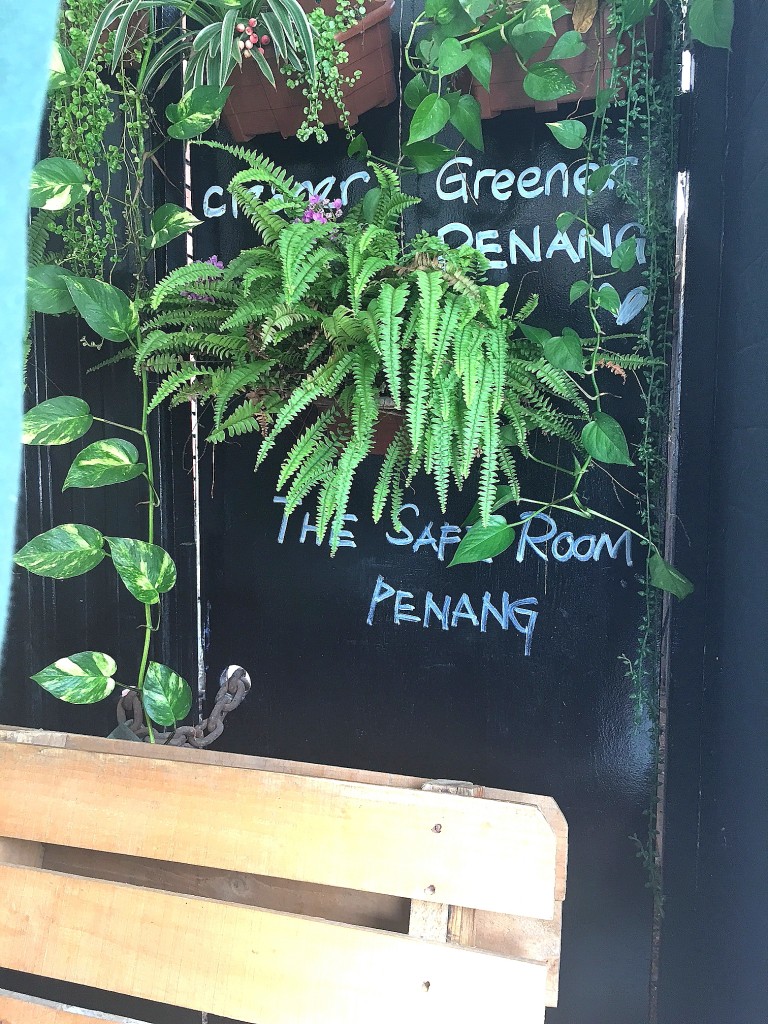 cleaner Greener
PENANG
THE SAFE ROOM
PENANG